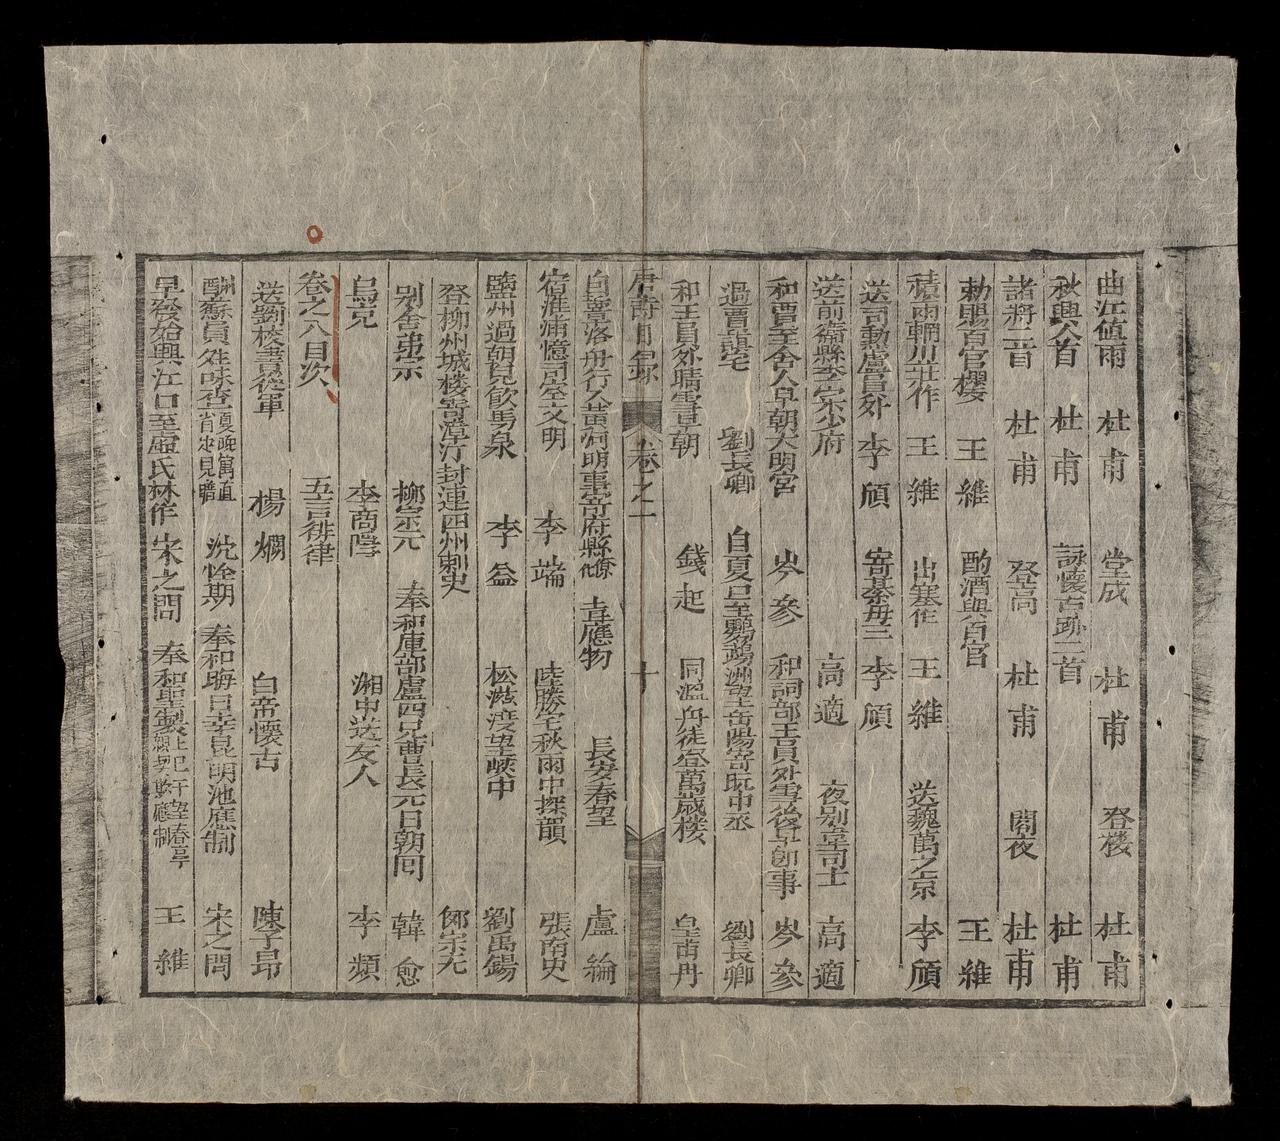 曲江値雨 杜甫 堂成 杜甫 登楼 杜甫
秋興八首 杜甫 詠懷古跡二首 杜甫
諸將五首 杜甫 登高 杜甫 閣夜 杜甫
勅賜百官櫻 王維 酌酒與 王維
積雨輞川庄作 王維 出塞作 王維 送魏萬之京 李頎
送司勳盧員外 李頎 寄綦毋三 李頎
送前衛縣李宷少府 高適 夜别韋司士 高適
和賈至舍人早朝大明宮 岑參 和祠部王員外雪後早朝即事 岑參
過賈誼宅 劉長卿 自夏口至鸚鵡洲望岳陽寄阮中丞 劉長卿
和王員外晴雪早朝 錢起 同溫丹徒登萬歲楼 皇甫冉
唐詩目錄 卷之一 十
自鞏洛舟行入黄河即事寄府縣僚 韋應物 長安春望 盧綸
宿淮浦憶司空文明 李端 陸勝宅秋雨中探韻 張南史
鹽州過胡兒飲馬泉 李益 松滋渡望峽中 劉禹錫
登柳州城楼寄漳汀封連四州刺史 柳宗元
别舍弟宗一 柳宗元 奉和庫部盧四兄曹長元日朝回 韓愈
李商隱 湘中送友人 李頻
卷之八目次 五言徘律
送劉校書從軍 楊烱 白帝懷古 陳子昂
酬蘇員外味 夏晚寓直省中見贈 沈佺期 奉和晦日幸昆明池應制 宋之問
早發始興江口至虛氏村作 宋之問 奉和聖製上巳于望春亭 王維